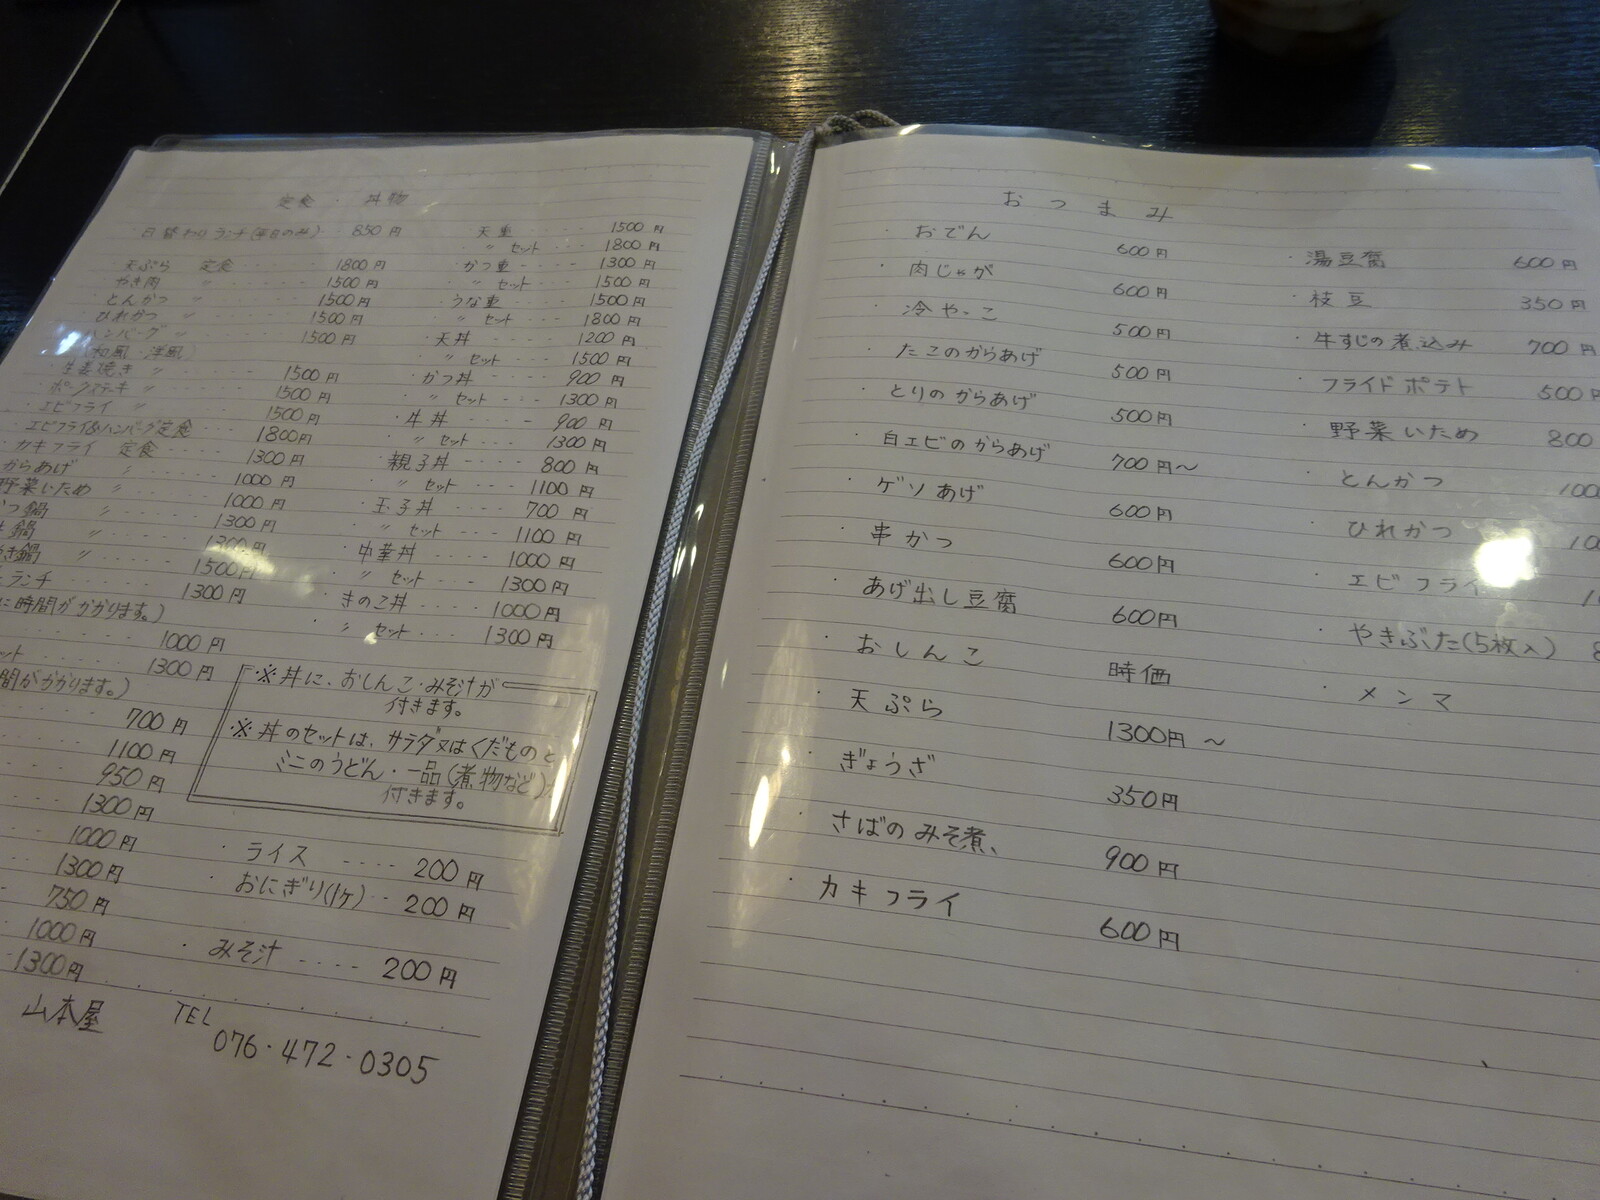 定食・丼物
・日替わりランチ(平日のみ)・850円
・天ぷら 定食 ‥‥ 1800円
・やき肉 〃 ‥‥ 1500円
・とんかつ 〃 ‥‥ 1500円
・ひれかつ 〃 ‥‥ 1500円
・ハンバーグ 〃 ‥‥ 1500円
(和風・洋風)
・生姜焼き 〃 ‥‥ 1500円
・ポークステーキ 〃 ‥‥ 1500円
・エビフライ 〃 ‥‥ 1500円
・エビフライ&ハンバーグ定食 ‥‥ 1800円
・カキフライ 定食 ‥‥ 1300円
からあげ 〃 ‥‥ 1000円
野菜いため 〃 ‥‥ 1000円
つ鍋 〃 ‥‥ 1300円
鍋 〃 ‥‥ 1300円
き鍋 〃 ‥‥ 1500円
ランチ ‥‥ 1300円
に時間がかかります。)
‥‥ 1000円
ット ‥‥ 1300円
間がかかります。)
‥‥ 700円
‥‥ 1100円
‥‥ 950円
‥‥ 1300円
‥‥ 1000円
‥‥ 1300円
‥‥ 750円
‥‥ 1000円
1300円
・天重 ‥‥ 1500円
〃 セット ‥‥ 1800円
・かつ重 ‥‥ 1300円
〃 セット ‥‥ 1500円
・うな重 ‥‥ 1500円
〃 セット ‥‥ 1800円
・天丼 ‥‥ 1200円
〃 セット ‥‥ 1500円
・かつ丼 ‥‥ 900円
〃 セット ‥‥ 1300円
・牛丼 ‥‥ 900円
〃 セット ‥‥ 1300円
・親子丼 ‥‥ 800円
〃 セット ‥‥ 1100円
・玉子丼 ‥‥ 700円
〃 セット ‥‥ 1100円
・中華丼 ‥‥ 1000円
〃 セット ‥‥ 1300円
・きのこ丼 ‥‥ 1000円
〃 セット ‥‥ 1300円
※丼に、おしんこ・みそ汁が
付きます。
※丼のセットは、サラダ又はくだものと
ミニのうどん・一品(煮物など)が
付きます。
・ライス ‥‥ 200円
おにぎり(1ケ) ‥ 200円
・みそ汁 ‥‥ 200円
山本屋 TEL
076・472・0305
おつまみ
・おでん 600円
・肉じゃが 600円
・冷やっこ 500円
・たこのからあげ 500円
・とりのからあげ 500円
・白エビのからあげ 700円～
・ゲソあげ 600円
・串かつ 600円
・あげ出し豆腐 600円
・おしんこ 時価
・天ぷら 1300円～
・ぎょうざ 350円
・さばのみそ煮、 900円
・カキフライ 600円
・湯豆腐 600円
・枝豆 350円
・牛すじの煮込み 700円
・フライドポテト 500円
・野菜いため 800
・とんかつ 100
・ひれかつ 10
・エビフライ 1
・やきぶた(5枚入) 8
・メンマ